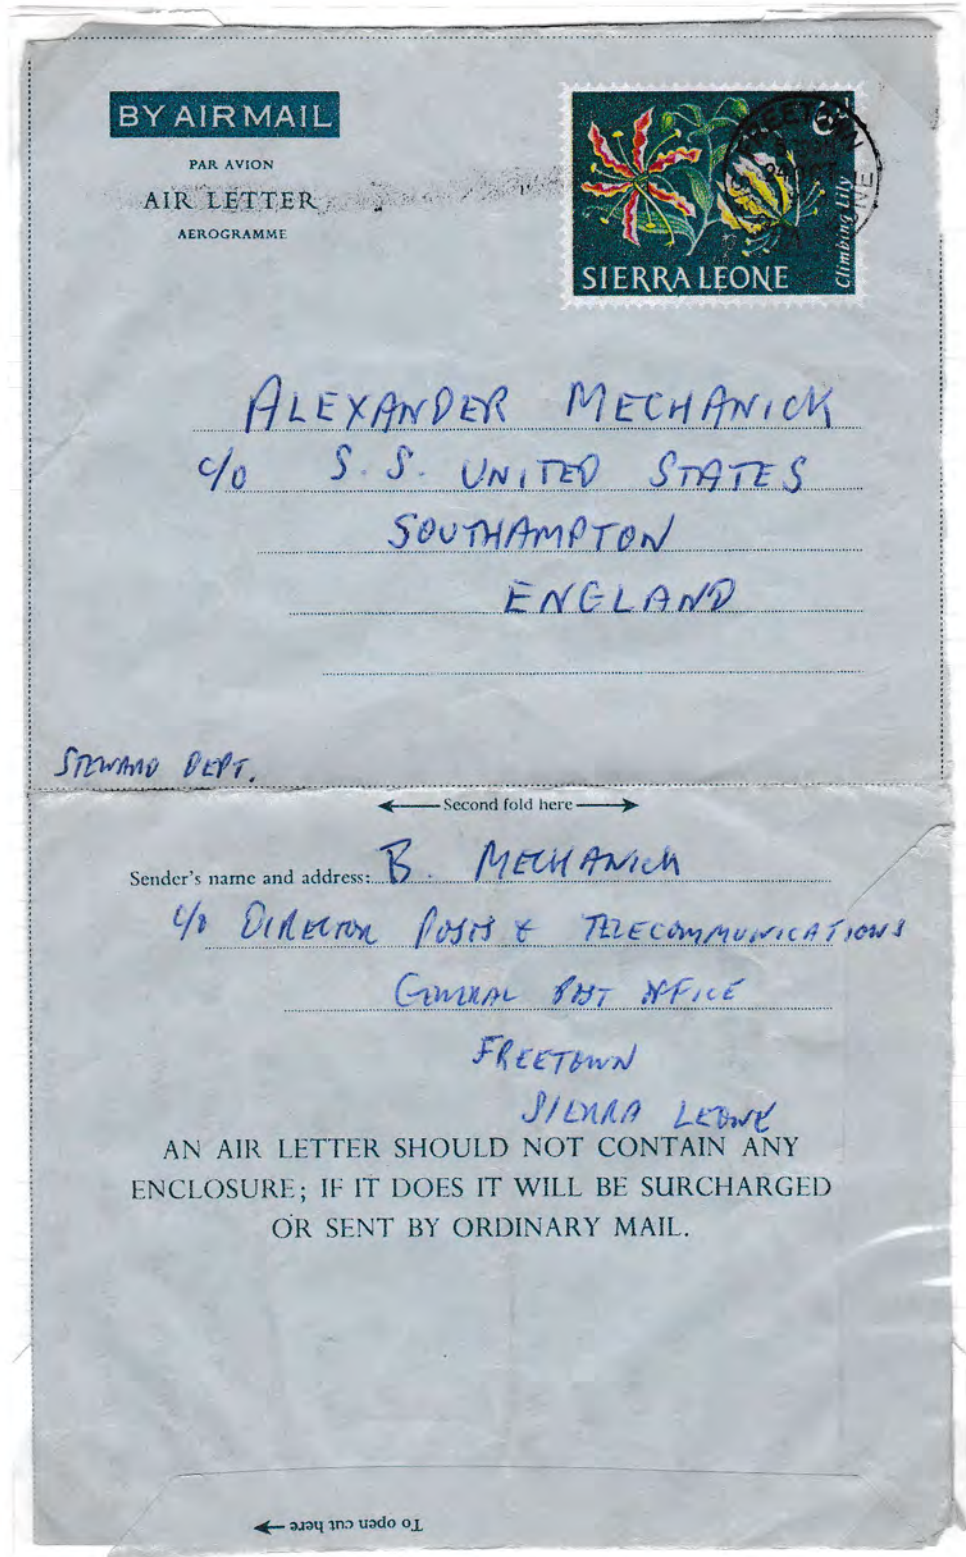 BY AIR MAIL
PAR AVION
AIR LETTER
AEROGRAMME
6d
FREETOWN
SIERRA LEONE
Climbing Lily
ALEXANDER MECHANICK
c/o S.S. UNITED STATES
SOUTHAMPTON
ENGLAND
STEWARD DEPT.
Second fold here
Sender's name and address: B. MECHANICK
c/o DIRECTOR POSTS & TELECOMMUNICATIONS
GENERAL POST OFFICE
FREETOWN
SIERRA LEONE
AN AIR LETTER SHOULD NOT CONTAIN ANY
ENCLOSURE; IF IT DOES IT WILL BE SURCHARGED
OR SENT BY ORDINARY MAIL.
To open cut here